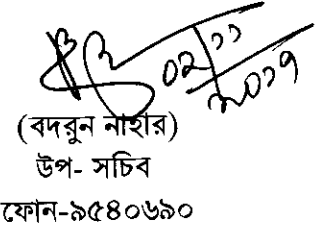 ০২/১১
২০১৭
(বদরুন নাহার)
উপ- সচিব
ফোন-৯৫৪০৬৯০